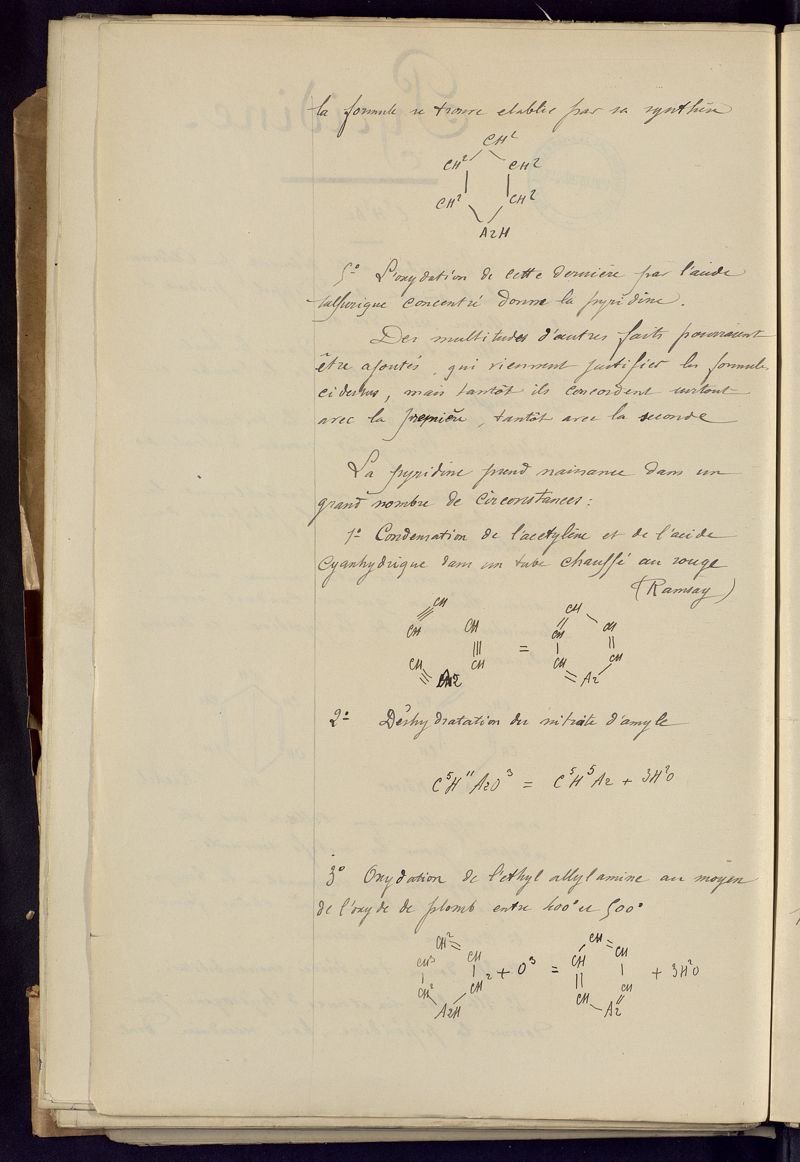 la formule se trouve etablie par sa synthèse
CH²
CH² CH²
CH² CH²
AzH
5° L'oxydation de cette dernière par l'acide
sulfurique concentré donne la pyridine.
Des multitudes d'autres faits pourraient
être ajoutés, qui viennent justifier les formules
cidessus, mais tantôt ils concordent surtout
avec la première, tantôt avec la seconde
La pyridine prend naissance dans un
grand nombre de circonstances :
1° Condensation de l'acetylène et de l'acide
cyanhydrique dans un tube chauffé au rouge
(Ramsay)
CH CH
CH CH CH CH
CH CH = CH CH
Az Az
2° Déshydratation du nitrate d'amyle
C⁵H¹¹AzO³ = C⁵H⁵Az + 3H²O
3° Oxydation de l'ethyl allylamine au moyen
de l'oxyde de plomb entre 400° et 500°
CH² CH = CH
CH³ CH CH
CH² CH² + O³ = CH CH + 3H²O
AzH Az